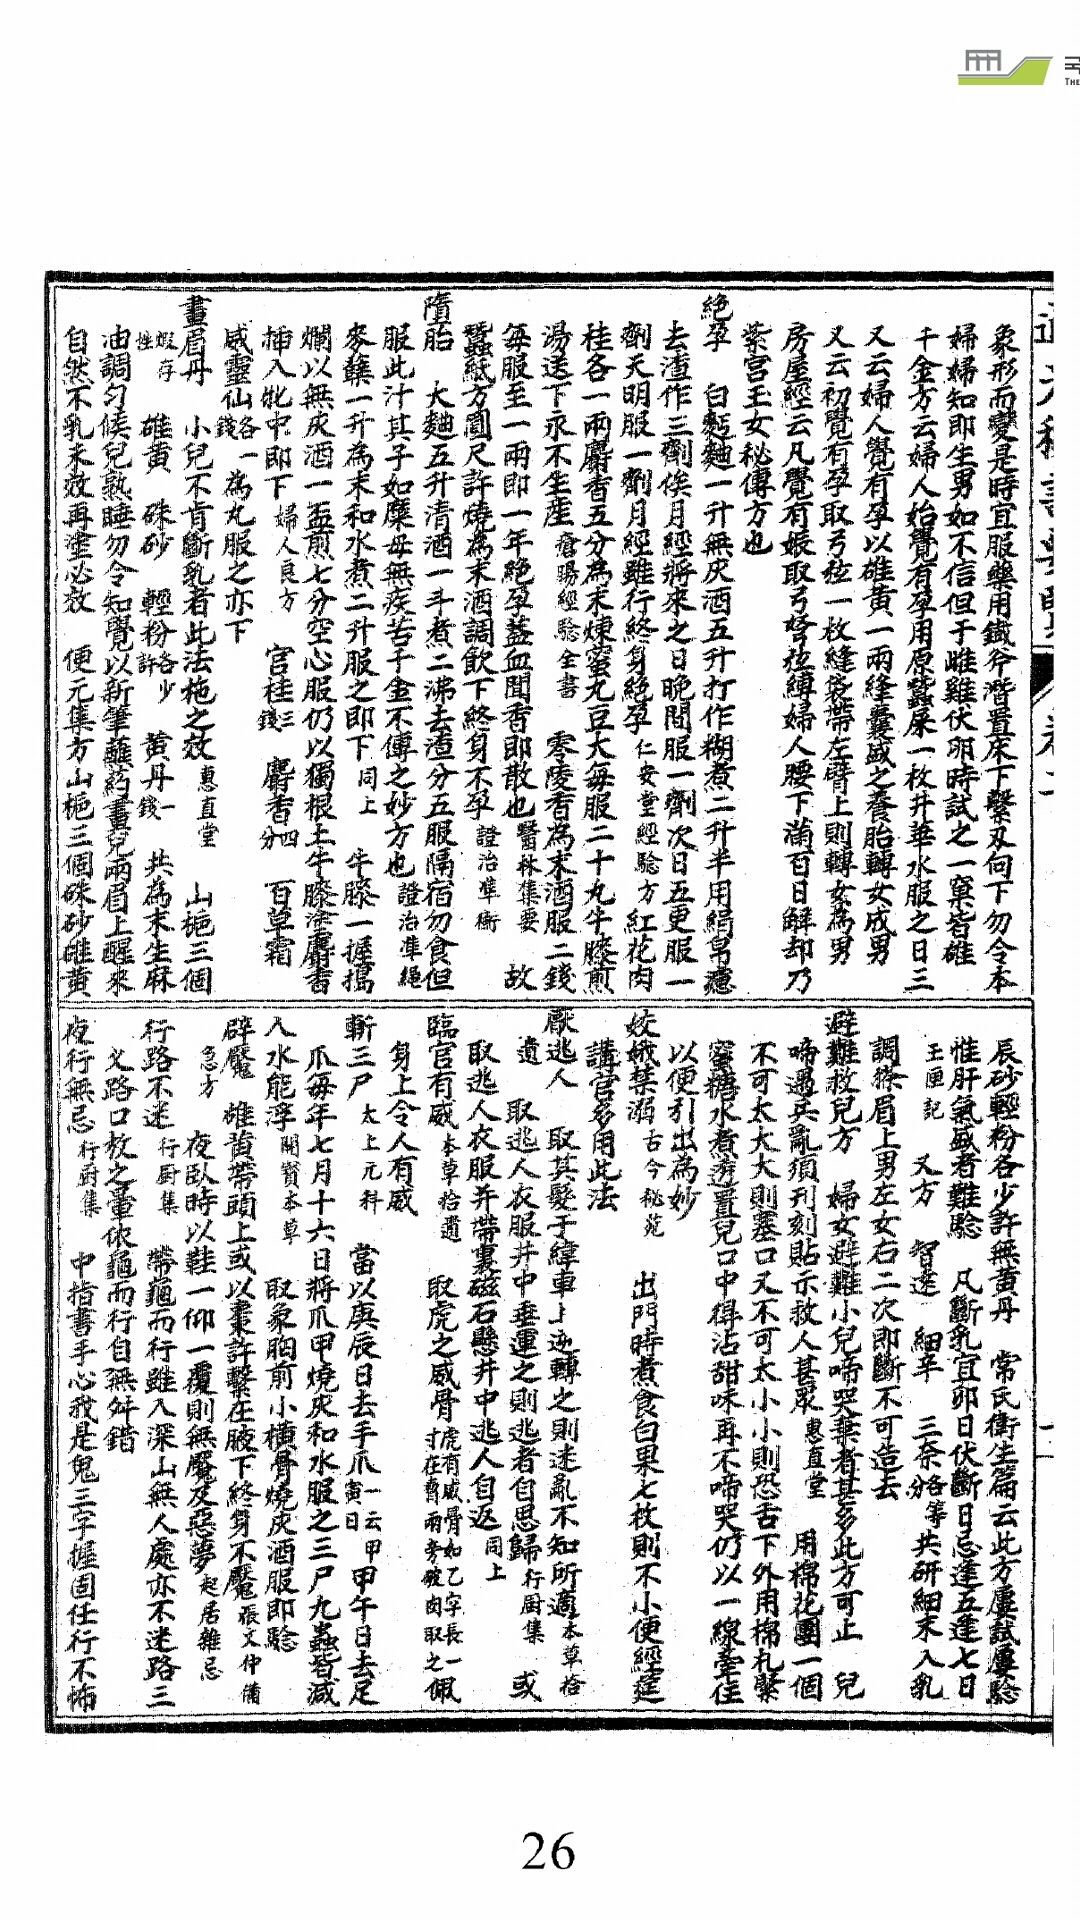 象形而變是時宜服藥用鐵斧潛置床下繫刃向下勿令本
婦婦知即生男如不信但于雌雞伏卵時試之一窠皆雄
千金方云婦人始覺有孕用原蠶屎一枚井華水服之日三
又云婦人覺有孕以雄黃一兩縫囊盛之養胎轉女成男
又云初覺有孕取弓弦一枚縫袋帶左臂上則轉女為男
房屋經云凡覺有娠取弓弩弦縛婦人腰下滿百日解却乃
紫宮王女秘傳方也
絕孕 白麪麯一升無灰酒五升打作糊煮二升半用絹帛濾
去渣作三劑俟月經將來之日晚間服一劑次日五更服一
劑天明服一劑月經雖行終身絕孕仁安堂經驗方紅花肉
桂各一兩麝香五分為末煉蜜丸豆大每服二十丸牛膝煎
湯送下永不生產瘡瘍經驗全書 零陵香為末酒服二錢
每服至一兩即一年絕孕蓋血聞香即散也醫林集要 故
蠶紙方圓尺許燒為末酒調飲下終身不孕證治準繩
墮胎 大麯五升清酒一斗煮二沸去渣分五服隔宿勿食但
服此汁其子如麋母無疾苦千金不傳之妙方也證治準繩
麥蘖一升為末和水煮二升服之即下同上 牛膝一握搗
爛以無灰酒一盃煎七分空心服仍以獨根土牛膝塗麝香
插入牝中即下婦人良方 官桂三錢 麝香四分 百草霜
威靈仙各一錢為丸服之亦下
畫眉丹 小兒不肯斷乳者此法施之效惠直堂 山梔三個
煆存性 雄黃 硃砂 輕粉各少許 黃丹一錢 共為末生麻
油調勻候兒熟睡勿令知覺以新筆蘸葯畫兒兩眉上醒來
自然不乳未效再塗必效 便元集方山梔三個硃砂雄黃
辰砂輕粉各少許無黃丹 常氏衛生篇云此方屢試屢驗
惟肝氣盛者難驗 凡斷乳宜卯日伏斷日忌逢五逢七日
玉匣記 又方 智遠 細辛 三奈各等分共研細末入乳
調搽眉上男左女右二次即斷不可造去
避難救兒方 婦女避難小兒啼哭棄者甚多此方可止 兒
啼遇兵亂須刊刻貼示救人甚眾惠直堂 用棉花團一個
不可太大大則塞口又不可太小小則恐舌下外用棉札繫
蜜糖水煮透置兒口中得沾甜味再不啼哭仍以一線牽住
以便引出為妙
姣娥禁溺古今秘苑 出門時煮食白果七枚則不小便經筵
講官多用此法
厭逃人 取其髮于緯車上逆轉之則迷亂不知所適本草拾
遺 取逃人衣服井中垂運之則逃者自思歸行厨集 或
取逃人衣服并帶裏磁石懸井中逃人自返同上
臨官有威本草拾遺 取虎之威骨虎有威骨如乙字長一寸在脅兩旁破肉取之佩
身上令人有威
斬三尸太上元科 當以庚辰日去手爪一云甲寅日甲午日去足
爪每年七月十六日將爪甲燒灰和水服之三尸九蟲皆滅
人水能浮開寶本草 取象胸前小橫骨燒灰酒服即驗
辟魘 雄黃帶頭上或以棗許繫在腋下終身不魘張文仲備
急方 夜臥時以鞋一仰一覆則無魘及惡夢起居雜忌
行路不迷行厨集 帶龜而行雖入深山無人處亦不迷路三
叉路口放之量依龜而行自無舛錯
夜行無忌行厨集 中指書手心我是鬼三字握固任行不怖
26